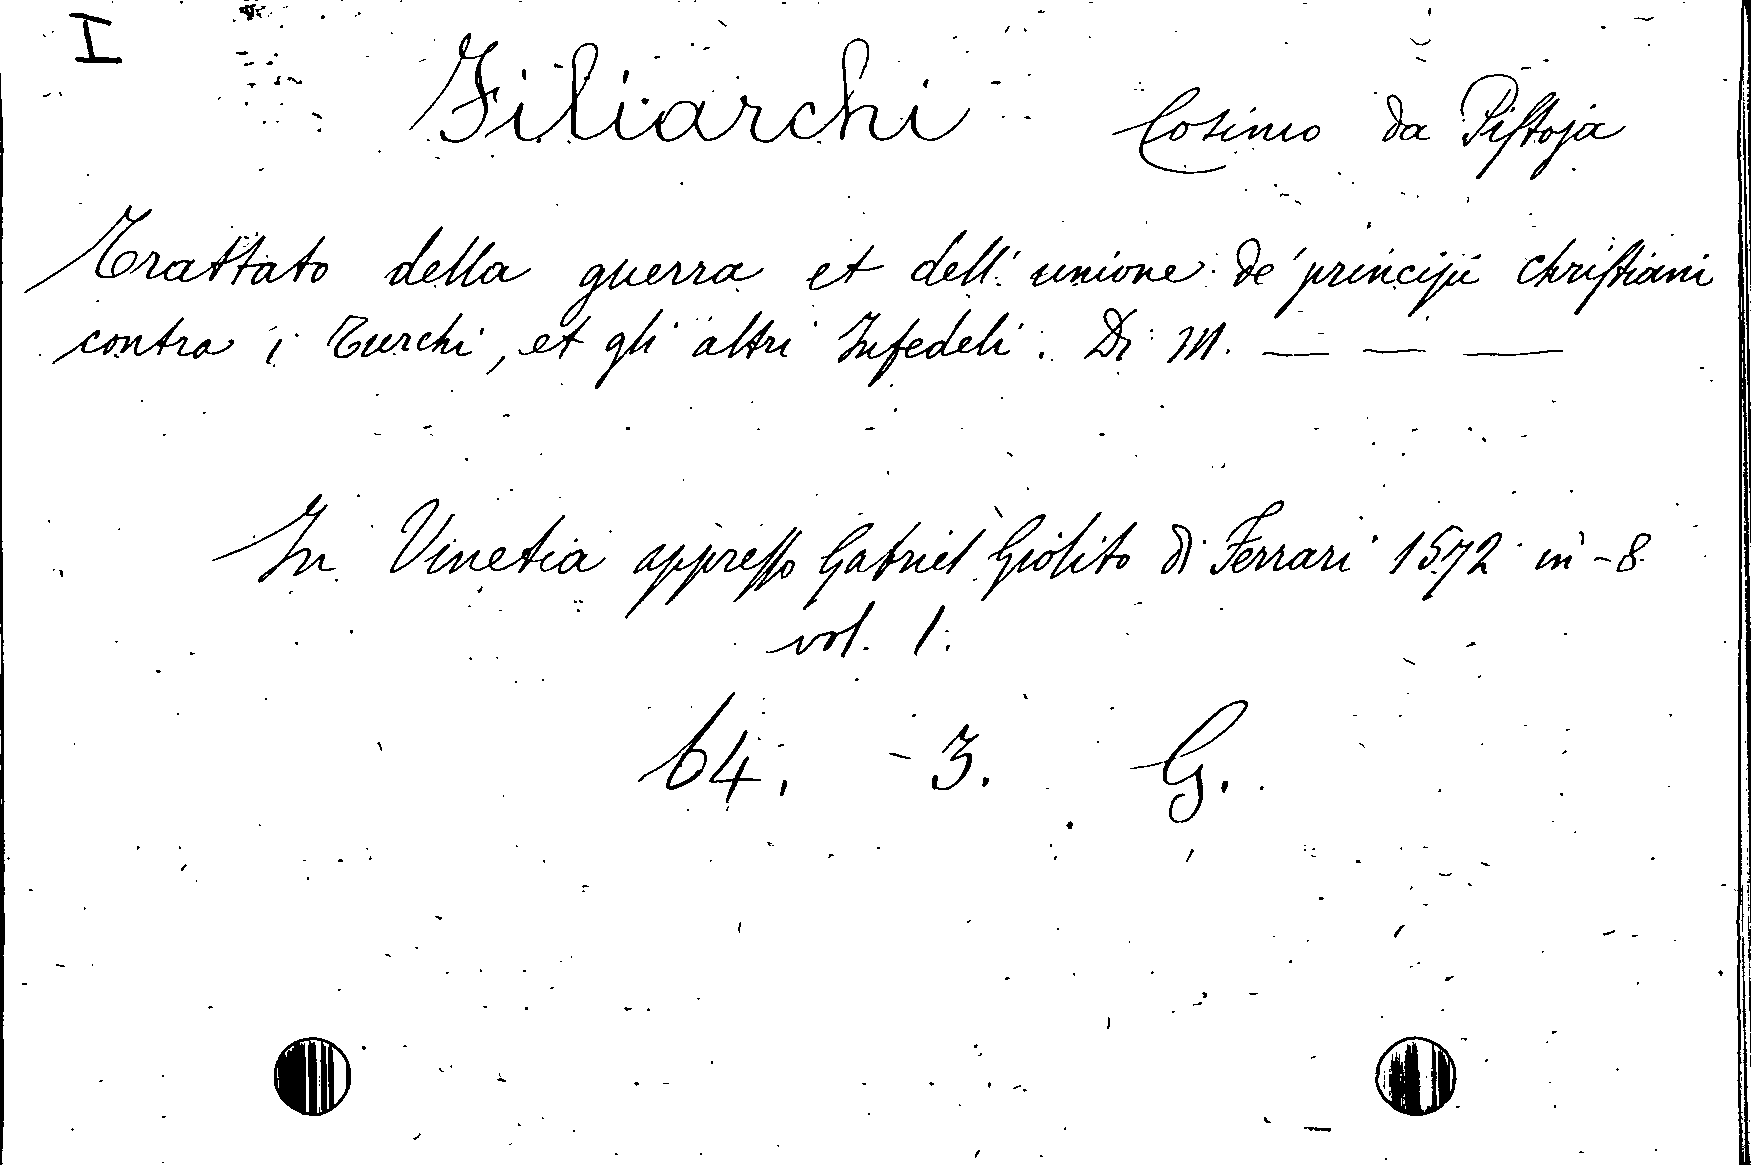 I
Filiarchi Cosimo da Piſtoja
Trattato della guerra et dell' unione de' principii Chriſtiani
contra i Turchi, et gli altri Infedeli. Di M. — — —
In Vinetia appreſſo Gabriel Giolito di Ferrari 1572 in-8.
vol. 1.
64. - 3. G.